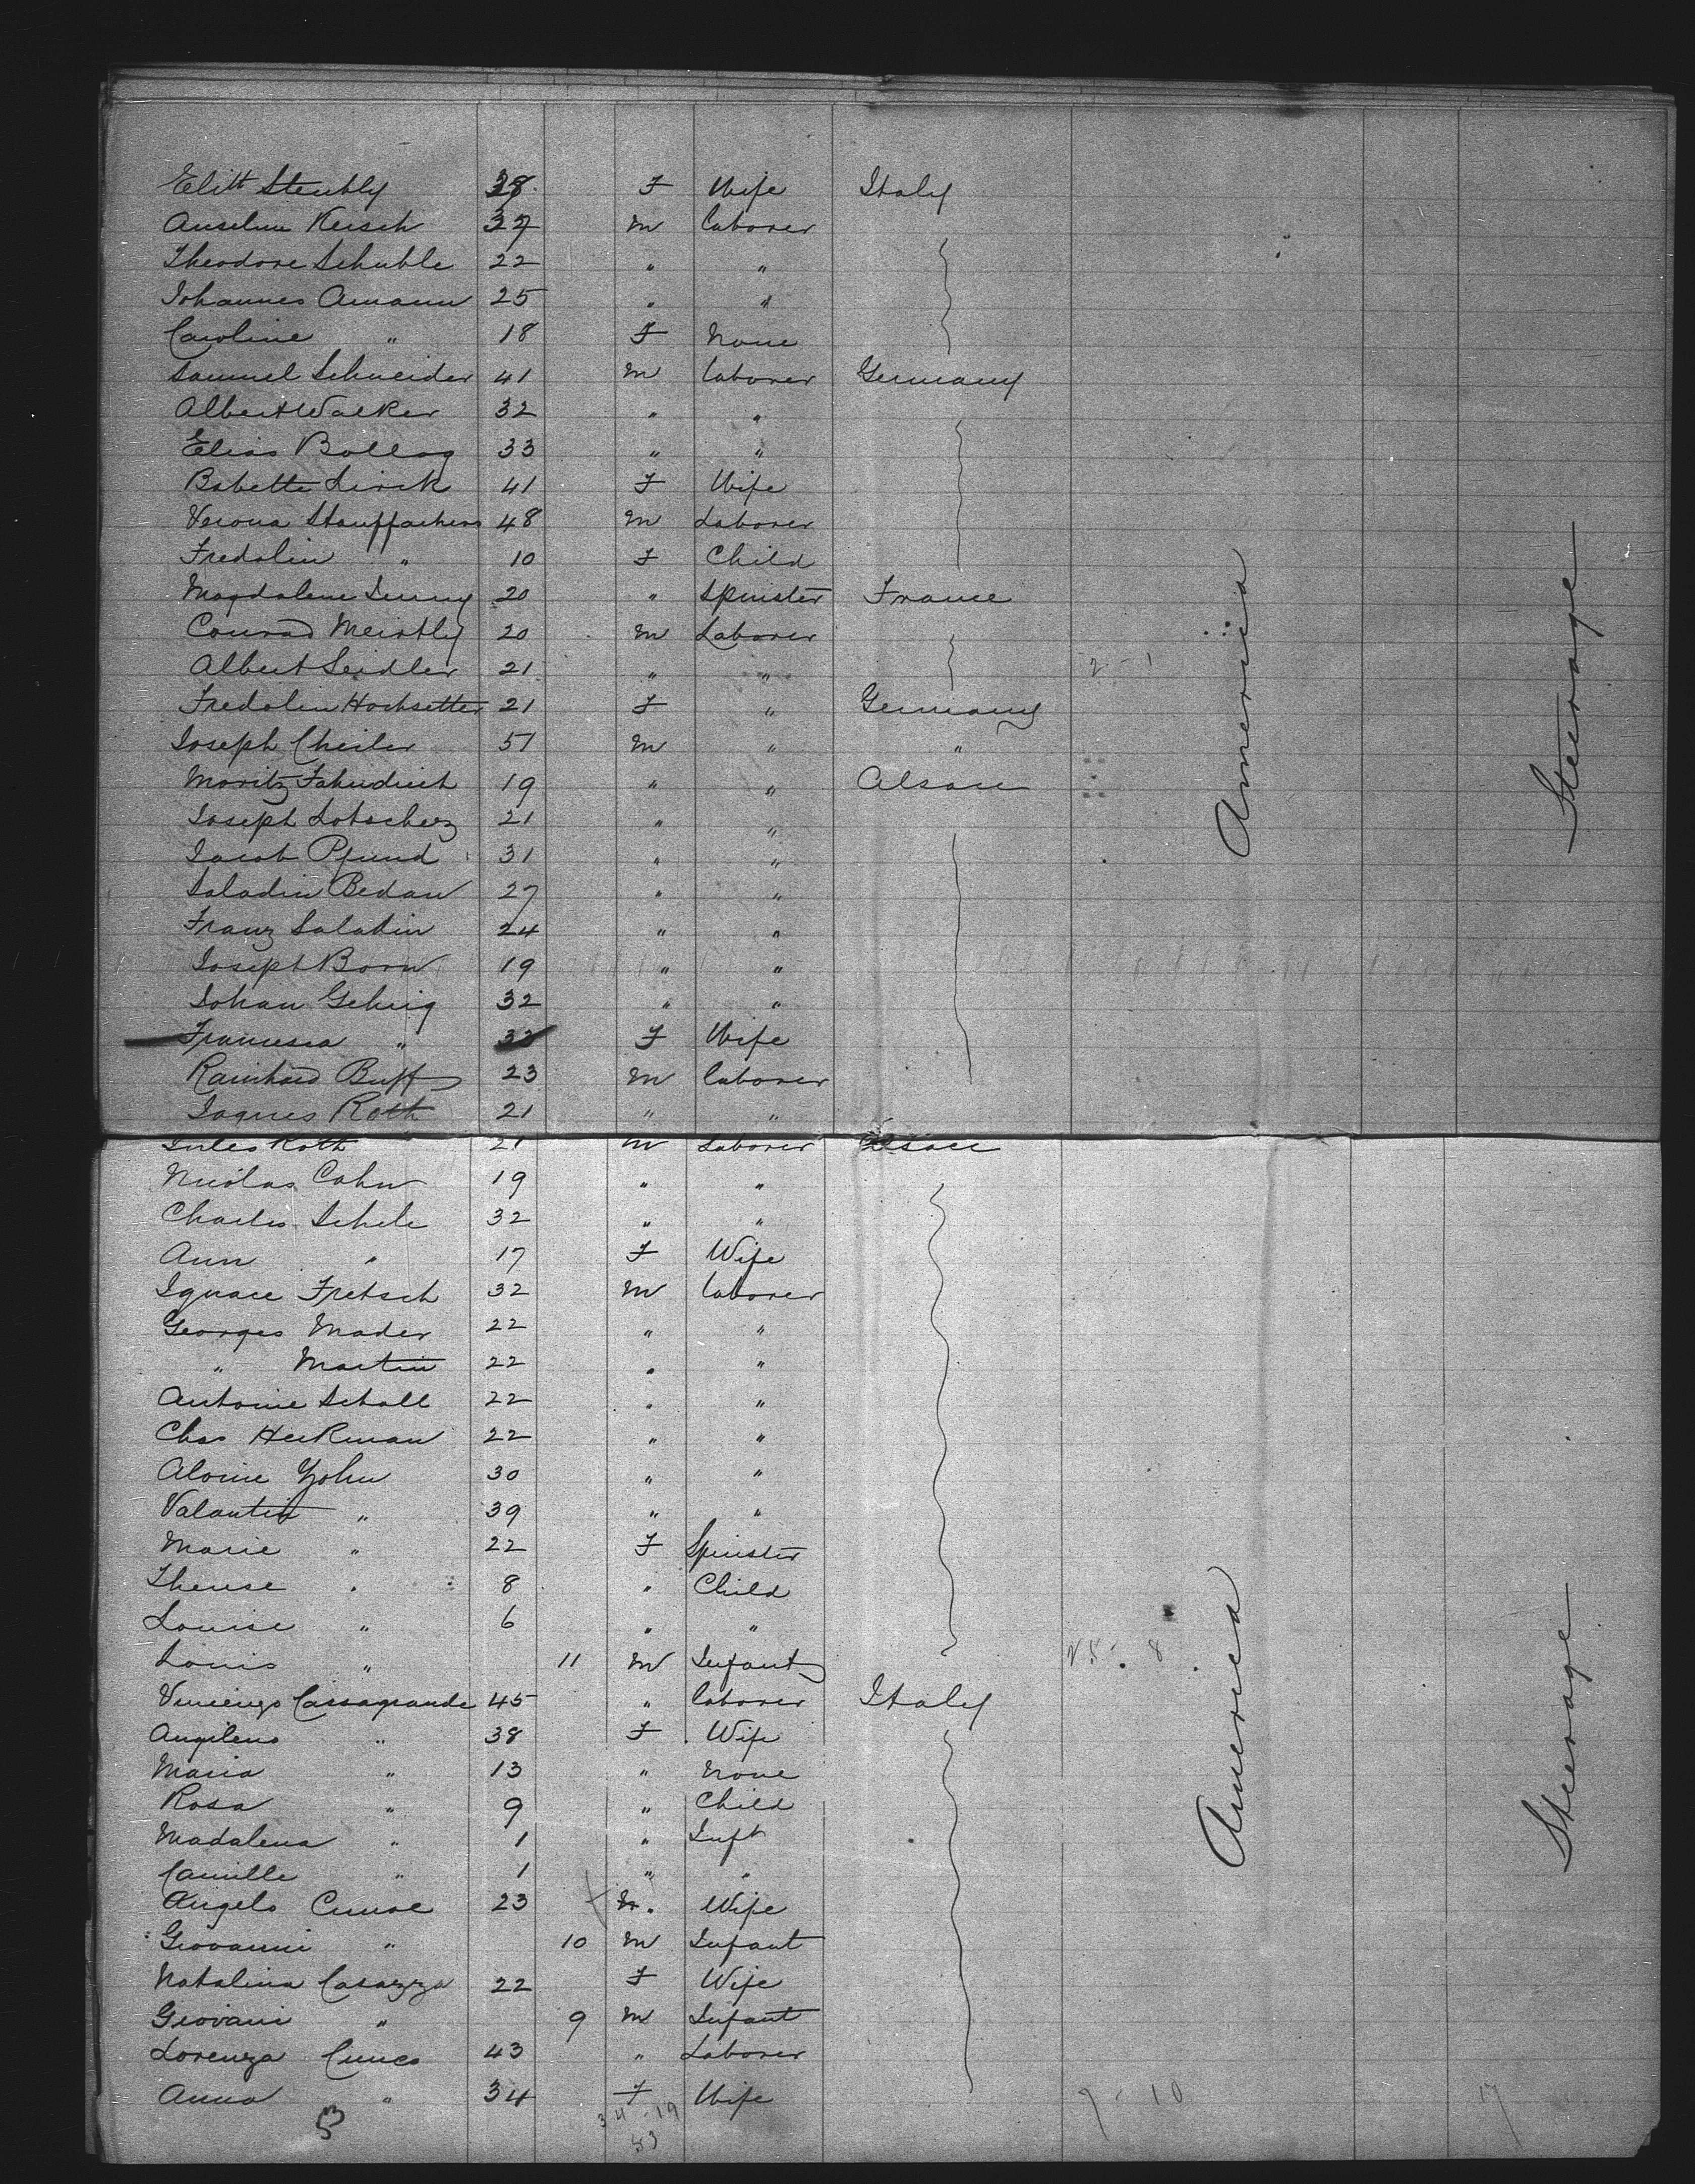 Elitt Steubly 38 F Wife Italy
Anselm Kersch 37 m laborer
Theodore Schuble 22 " "
Johannes Amann 25 " "
Caroline " 18 F None
Samuel Schneider 41 m laborer Germany
Albert Walker 32 " "
Elias Bollag 33 " "
Babette Linck 41 F Wife
Verona Stauffachers 48 m Laborer
Fredolin " 10 F Child
Magdalene Jenny 20 " Spinster France
Conrad Meistly 20 m Laborer
Albert Seidler 21 " " 2 - 1
Fredolin Hochsetter 21 F " Germany
Joseph Cheiler 51 m " "
Moritz Fahndrich 19 " " Alsace
Joseph Lotscherz 21 " "
Jacob Pfund 31 " "
Saladin Bedau 27 " "
Franz Saladin 24 " "
Joseph Born 19 " "
Johan Gehrig 32 " "
Francesca " 32 F Wife
Rainhard Buff 23 m laborer
Jaques Roth 21 " "
America
Steerage
Jules Roth 21 m Laborer Alsace
Nicolas Cahn 19 " "
Charles Schele 32 " "
Ann " 17 F Wife
Ignace Fretsch 32 m laborer
Georges Mader 22 " "
" Martin 22 " "
Antoine Scholl 22 " "
Chas Heckman 22 " "
Aloine Zohn 30 " "
Valantin " 39 " "
Marie " 22 F Spinster
Therese " 8 " Child
Louise " 6 " "
Louis " 11 m Infant 25 - 8
Vincenzo Cassagrande 45 " laborer Italy
Angilena " 38 F Wife
Maria " 13 " None
Rosa " 9 " Child
Madalena " 1 " Inft
Camille " 1 " "
Angelo Cuneo 23 m. Wife
Giovanni " 10 m Infant
Natalina Casazza 22 F Wife
Giovani " 9 m Infant
Lorenza Cuneo 43 " Laborer
Anna " 34 F Wife 7 - 10 17
53 34 - 19
53
America
Steerage